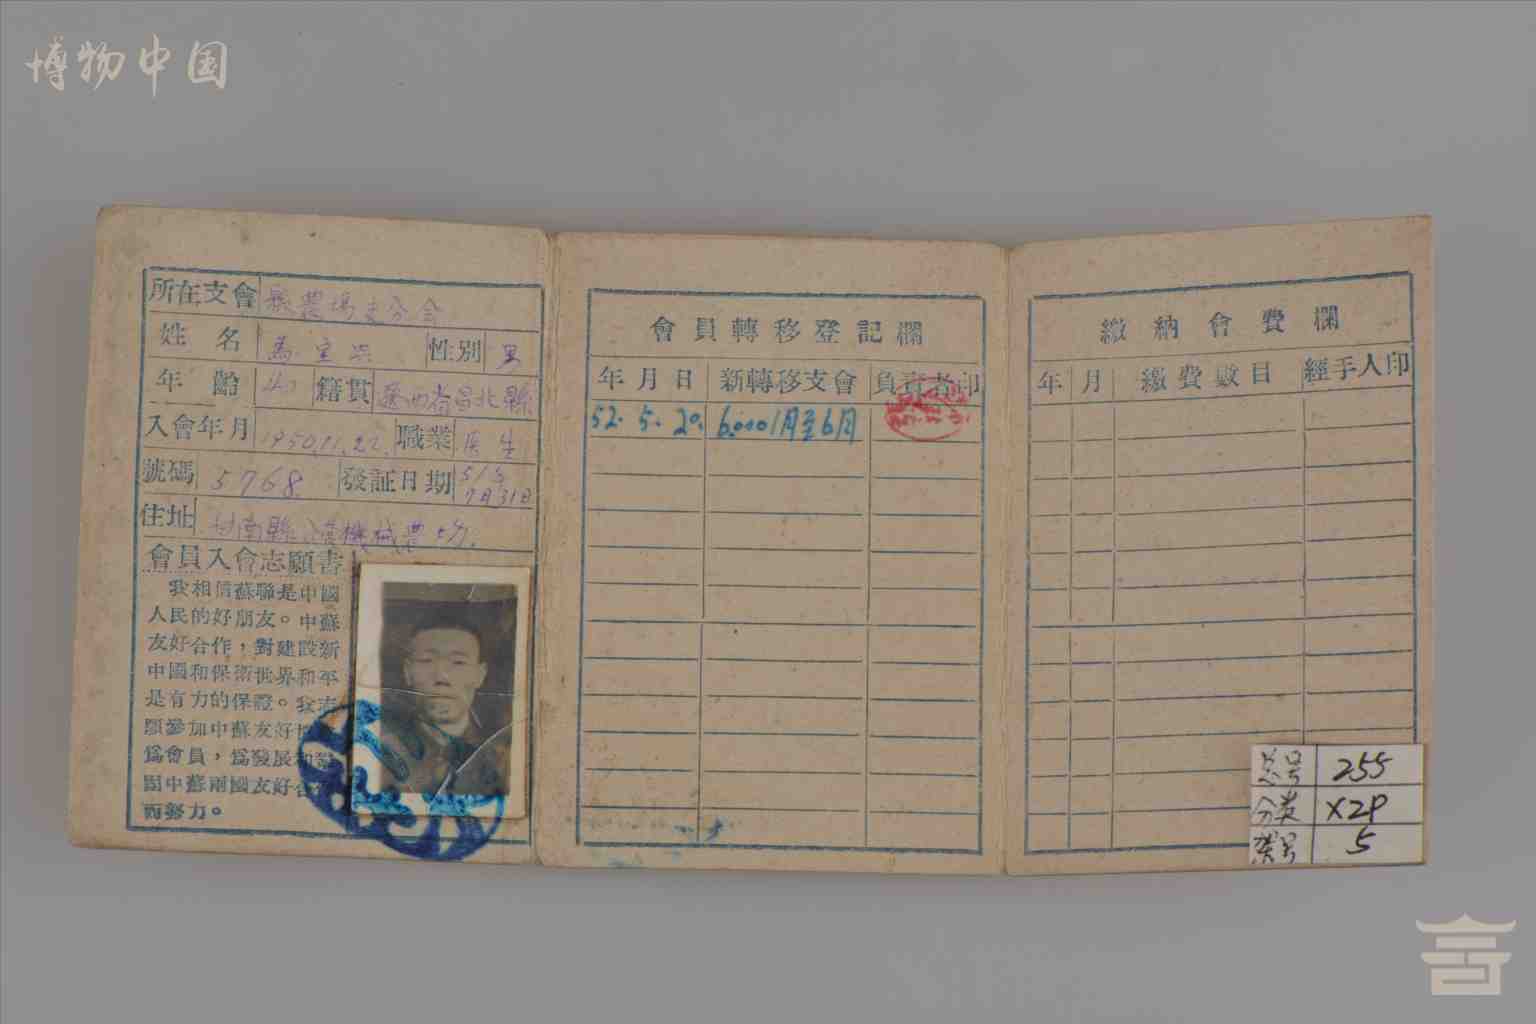 博物中国
所在支會 縣農場支分会
姓名 馬 性別 男
年齡 40 籍貫 遼西省昌北縣
入會年月 1950.11.22. 職業 医生
號碼 5768 發証日期 51/5 7月31日
住址 甘南縣 機械農场.
會員入會志願書
我相信蘇聯是中國
人民的好朋友。中蘇
友好合作，對建設新
中國和保衛世界和平
是有力的保證。我志
願參加中蘇友好協
爲會員，爲發展和鞏
固中蘇兩國友好合作
而努力。
會員轉移登記欄
年月日 新轉移支會 負責者印
52.5.20. 6.000 1月至6月
繳納會費欄
年 月 繳費數目 經手人印
总号 255
分类 X29
类号 5